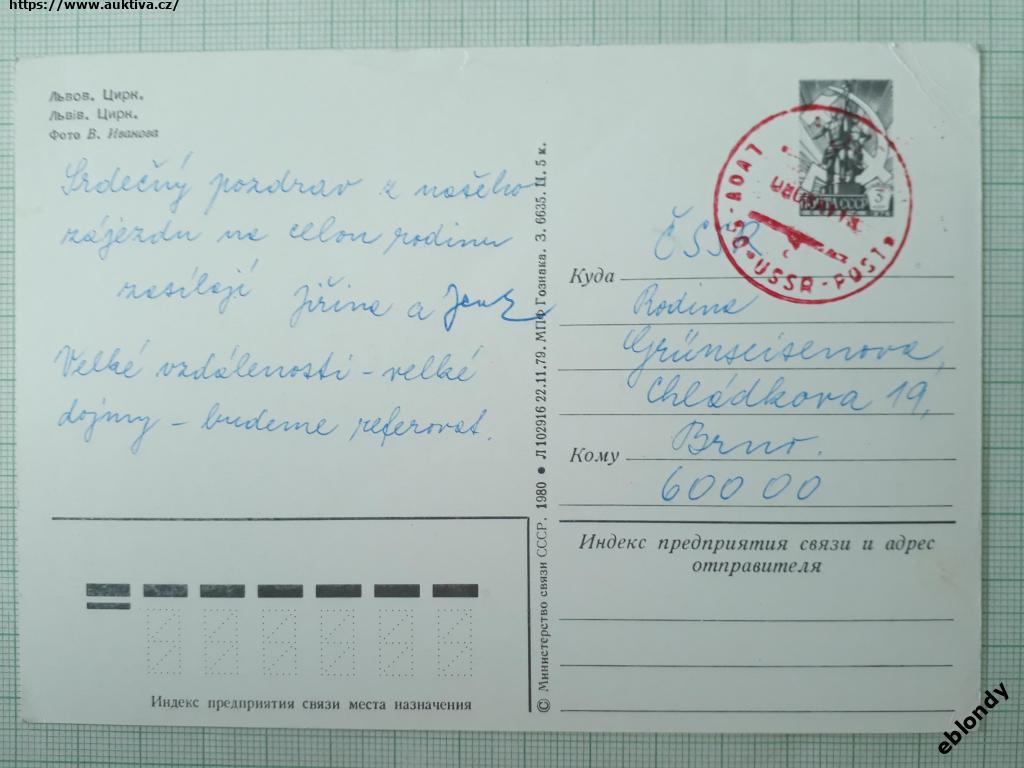 https://www.auktiva.cz/
Львов. Цирк.
Львів. Цирк.
Фото В. Иванова
Srdečný pozdrav z našeho
zájezdu na celou rodinu
zasílají Jiřina a
Velké vzdálenosti – velké
dojmy – budeme referovat.
© Министерство связи СССР. 1980 • Л 102916 22.11.79. МПФ Гознака. З. 6635. Ц. 5 к.
ПОЧТА СССР 3
USSR-POST
Куда
ČSSR
Rodina
Grünseisenova,
Chládkova 19,
Кому
Brno.
600 00
Индекс предприятия связи и адрес
отправителя
Индекс предприятия связи места назначения
eblondy